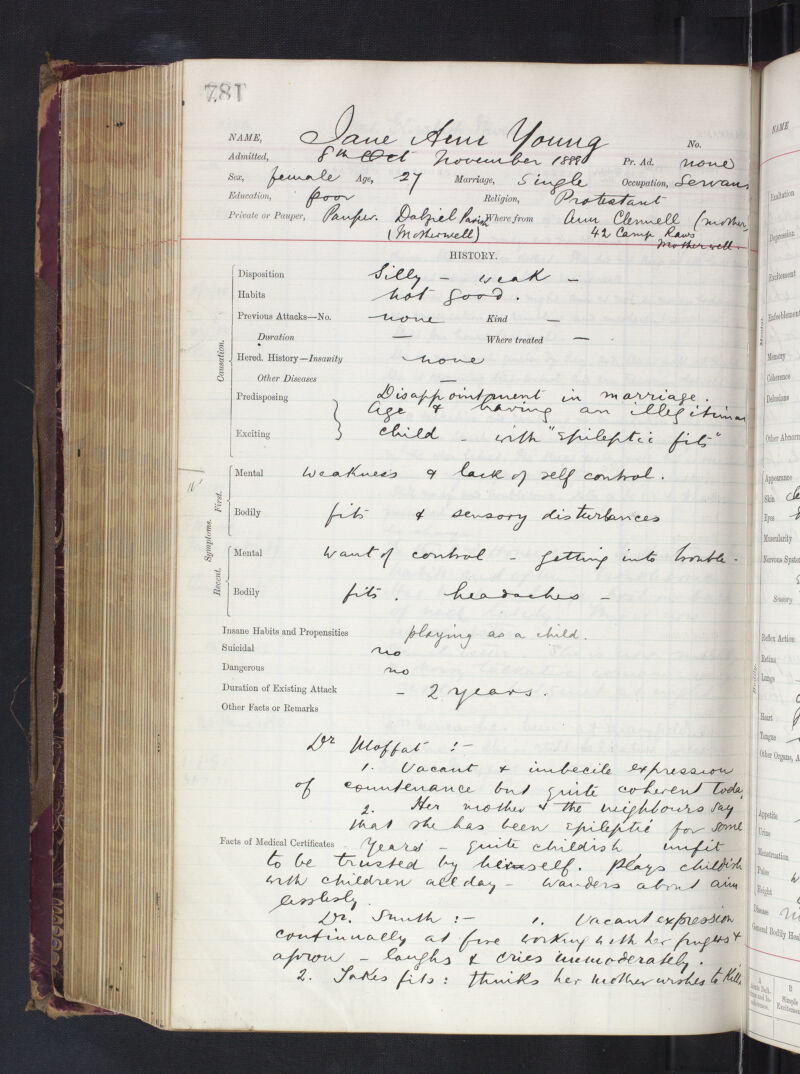 781
NAME, Jane Ann Young No.
Admitted, 8th Oct November 1888 Pr. Ad. none
Sex, female Age, 27 Marriage, Single Occupation, Servan
Education, poor Religion, Protestant
Private or Pauper, Pauper. Dalziel Parish Where from Ann Clennell (mother
(Motherwell) 42 Camp Raws
Motherwell
HISTORY.
Causation.
Disposition Silly - weak -
Habits not good.
Previous Attacks—No. none Kind —
Duration — Where treated —
Hered. History—Insanity none
Other Diseases —
Predisposing Disappointment in marriage.
Age & having an illegitima
Exciting child - with "Epileptic fits"
Symptoms. First.
Mental weakness & lack of self control.
Bodily fits & sensory disturbances
Recent.
Mental want of control - getting into trouble -
Bodily fits. headaches -
Insane Habits and Propensities playing as a child.
Suicidal no
Dangerous no
Duration of Existing Attack - 2 years.
Other Facts or Remarks
Dr Moffat :-
1. Vacant & imbecile expression
of countenance but quite coherent today
2. Her mother & the neighbours say
that she has been epileptic for some
Facts of Medical Certificates years - quite childish unfit
to be trusted by herself. Plays childish
with children all day - wanders about aim
lesslesly.
Dr. Smith :- 1. Vacant expression
continually at fire working with her fingers &
apron - laughs & cries immoderately.
2. Takes fits: thinks her mother wishes to kill
NAME
Exaltation
Depression
Excitement
Enfeeblement
Mental.
Memory
Coherence
Delusions
Other Abnorm
Appearance
Skin
Eyes
Muscularity
Nervous Syste
Sensory
Reflex Action
Retina
Lungs
Bodily.
Heart
Tongue
Other Organs, A
Appetite
Urine
Menstruation
Pulse
Height
Disease
General Bodily Heal
A B
Simple
Excitemen